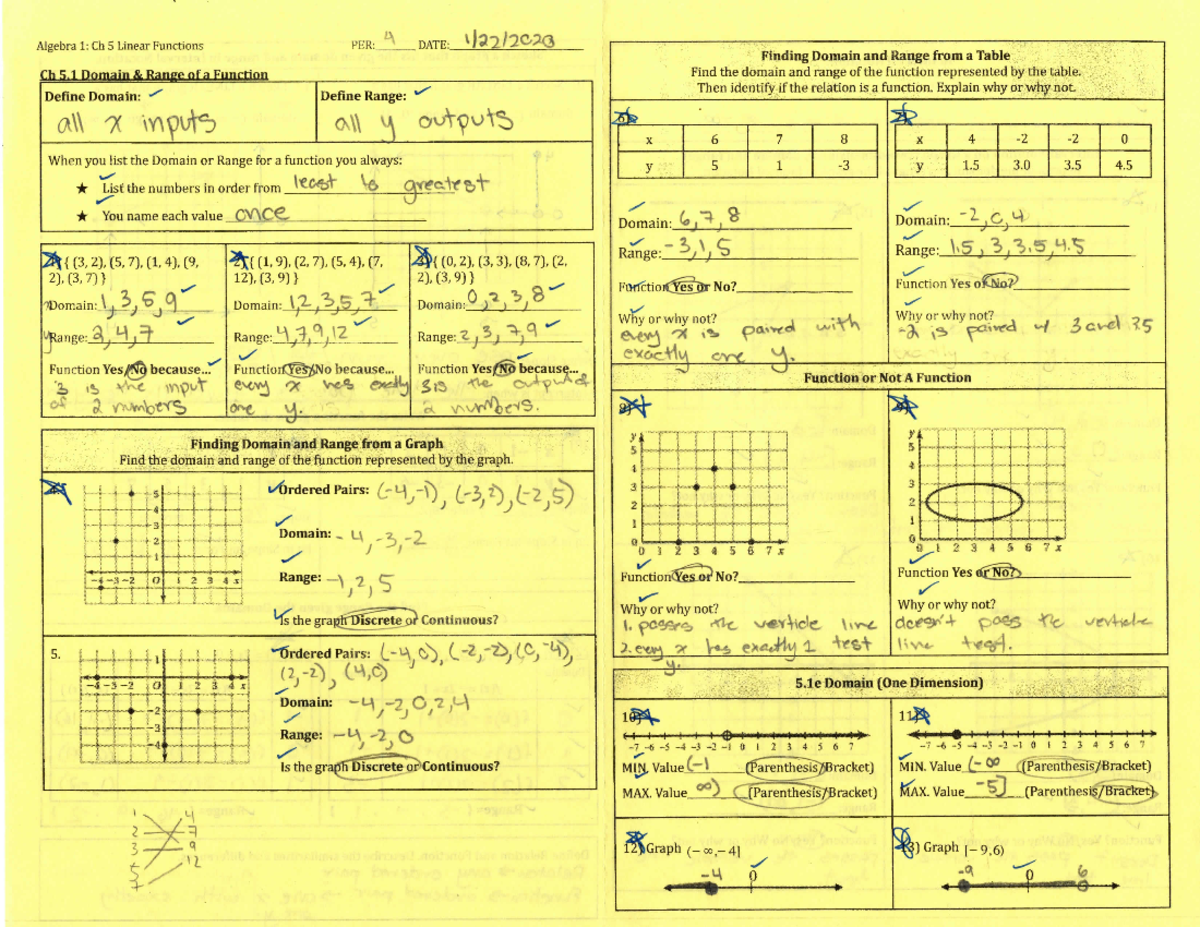 Algebra 1: Ch 5 Linear Functions PER: 4 DATE: 1/22/2020
Ch 5.1 Domain & Range of a Function
Define Domain: ✓
all x inputs
Define Range: ✓
all y outputs
When you list the Domain or Range for a function you always:
★ List the numbers in order from least to greatest
★ You name each value once
{ (3, 2), (5, 7), (1, 4), (9,
2), (3, 7) }
Domain: 1,3,5,9
Range: 2,4,7
Function Yes/No because...
3 is the input
of 2 numbers
2) { (1, 9), (2, 7), (5, 4), (7,
12), (3, 9) }
Domain: 1,2,3,5,7
Range: 4,7,9,12
Function Yes/No because...
every x has exactly
one y.
{ (0, 2), (3, 3), (8, 7), (2,
2), (3, 9) }
Domain: 0,2,3,8
Range: 2,3,7,9
Function Yes/No because...
3 is the output of
2 numbers.
Finding Domain and Range from a Graph
Find the domain and range of the function represented by the graph.
5
4
3
2
1
-4 -3 -2 O 1 2 3 4 x
Ordered Pairs: (-4,-1), (-3,2), (-2,5)
Domain: -4,-3,-2
Range: -1,2,5
Is the graph Discrete or Continuous?
5.
1
-4 -3 -2 O 1 2 3 4 x
-2
-3
-4
Ordered Pairs: (-4,0), (-2,-2), (0,-4),
(2,-2), (4,0)
Domain: -4,-2,0,2,4
Range: -4,-2,0
Is the graph Discrete or Continuous?
1 4
2 7
3 9
5 12
7
Finding Domain and Range from a Table
Find the domain and range of the function represented by the table.
Then identify if the relation is a function. Explain why or why not.
x 6 7 8
y 5 1 -3
Domain: 6,7,8
Range: -3,1,5
Function Yes or No?
Why or why not?
every x is paired with
exactly one y.
x 4 -2 -2 0
y 1.5 3.0 3.5 4.5
Domain: -2,0,4
Range: 1.5,3,3.5,4.5
Function Yes or No?
Why or why not?
-2 is paired w/ 3 and 3.5
Function or Not A Function
y
5
4
3
2
1
0
0 1 2 3 4 5 6 7 x
Function Yes or No?
Why or why not?
1. passes the verticle line
2. every x has exactly 1 test
y.
y
5
4
3
2
1
0
0 1 2 3 4 5 6 7 x
Function Yes or No?
Why or why not?
doesn't pass the verticle
line test.
5.1e Domain (One Dimension)
10)
-7 -6 -5 -4 -3 -2 -1 0 1 2 3 4 5 6 7
MIN. Value (-1 (Parenthesis/Bracket)
MAX. Value ∞) (Parenthesis/Bracket)
11)
-7 -6 -5 -4 -3 -2 -1 0 1 2 3 4 5 6 7
MIN. Value (-∞ (Parenthesis/Bracket)
MAX. Value -5] (Parenthesis/Bracket)
12) Graph (-∞,-4]
-4 0
13) Graph [-9,6)
-9 0 6